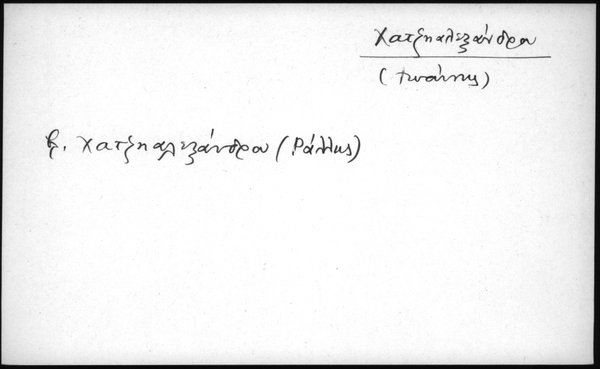 Χατζηαλεξάνδρου
(Ιωάννης)
β. Χατζηαλεξάνδρου (Ράλλης)